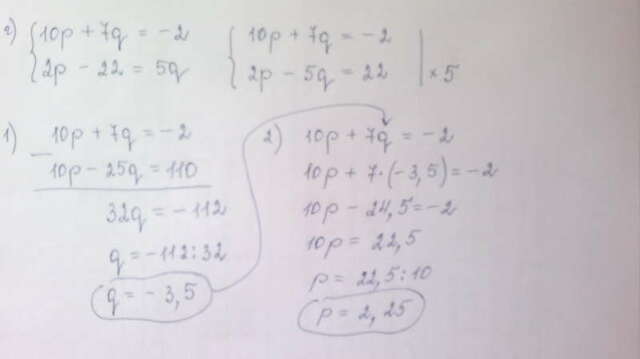 г) { 10p + 7q = -2 { 10p + 7q = -2
2p - 22 = 5q 2p - 5q = 22 | × 5
1) 10p + 7q = -2
- 10p - 25q = 110
32q = -112
q = -112:32
q = -3,5
2) 10p + 7q = -2
10p + 7·(-3,5) = -2
10p - 24,5 = -2
10p = 22,5
p = 22,5:10
p = 2,25